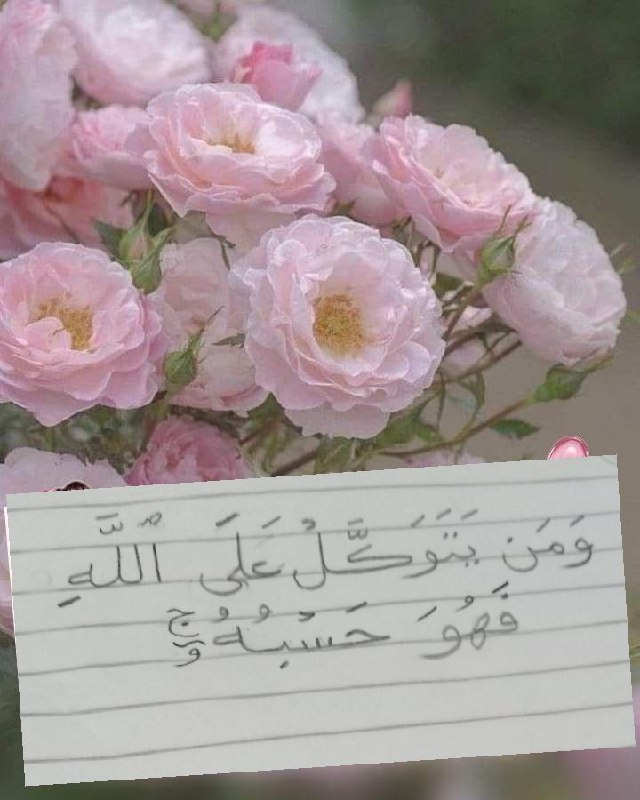 وَمَن يَتَوَكَّلُ عَلَى ٱللَّهِ
فَهُوَ حَسْبُهُ